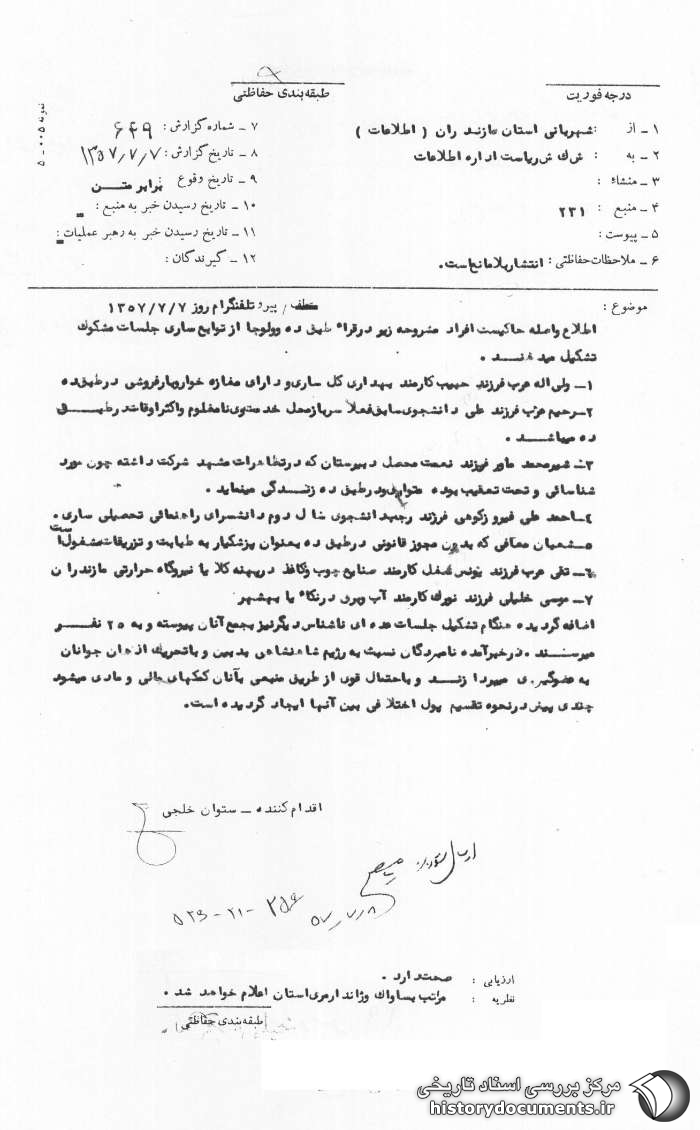 طبقه‌بندی حفاظتی
درجه فوریت
نمونه ۰۰۵ - ۵
۱ - از : شهربانی استان مازندران ( اطلاعات )
۷ - شماره گزارش : ۶۴۹
۲ - به : ش ك ش ریاست اداره اطلاعات
۸ - تاریخ گزارش : ۱۳۵۷/۷/۷
۳ - منشاء :
۹ - تاریخ وقوع برابر متن
۴ - منبع : ۲۳۱
۱۰ - تاریخ رسیدن خبر به منبع : -
۵ - پیوست :
۱۱ - تاریخ رسیدن خبر به رهبر عملیات : -
۶ - ملاحظات حفاظتی : انتشار بلامانع است .
۱۲ - گیرندگان :
موضوع : پیرو تلفنگرام روز ۱۳۵۷/۷/۷
اطلاع واصله حاکیست افراد مشروحه زیر در قراء طبق ده وولوجا از توابع ساری جلسات مشکوك
تشکیل میدهند .
۱- ولی اله عرب فرزند حبیب کارمند بهداری کل ساری و دارای مغازه خواروبار فروشی در طبق ده
۲- رحیم عرب فرزند علی دانشجوی سابق فعلا سرباز محل خدمت وی نامعلوم و اکثر اوقات در طبق
ده میباشد .
۳- شیرمحمد فرزند نعمت محصل دبیرستان که در تظاهرات مشهد شرکت داشته چون مورد
شناسائی و تحت تعقیب بوده متواری و در طبق ده زندگی مینماید .
۴- احمد علی فیروزکوهی فرزند رجب دانشجوی سال دوم دانشسرای راهنمائی تحصیلی ساری .
۵- شعبان معافی که بدون مجوز قانونی در طبق ده بعنوان پزشکیار به طبابت و تزریقات مشغول است
۶- تقی عرب فرزند یونس شغل کارمند صنایع چوب و کاغذ در پهنه کلا یا نیروگاه حرارتی مازندران
۷- موسی خلیلی فرزند نورك کارمند آب و برق در نکاء یا بهشهر
اضافه گردیده هنگام تشکیل جلسات عده ای ناشناس دیگر نیز بجمع آنان پیوسته و به ۲۵ نفر
میرسند . در خبر آمده نامبردگان نسبت به رژیم شاهنشاهی بدبین و با تحریك اذهان جوانان
به عضوگیری میپردازند و با احتمال قوی از طریق منبعی بآنان کمکهای مالی و مادی میشود
چندی پیش در نحوه تقسیم پول اختلافی بین آنها ایجاد گردیده است .
اقدام کننده - ستوان خلجی
۵۷/۷/۸
ارزیابی : صحت دارد .
نظریه : مراتب بساواك و ژاندارمری استان اعلام خواهد شد .
طبقه‌بندی حفاظتی
مرکز بررسی اسناد تاریخی
historydocuments.ir